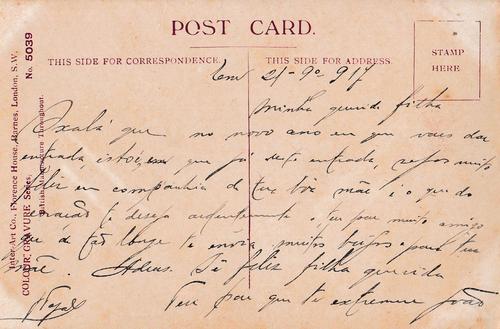 POST CARD.
THIS SIDE FOR CORRESPONDENCE.
THIS SIDE FOR ADDRESS.
STAMP
HERE
Inter-Art Co., Florence House, Barnes, London, S.W.
COLOUR GRAVURE Series.
British Manufacture Throughout.
No. 5039
Em 21-9º-917
Minha querida filha
Oxalá que no novo ano em que vais dar
entrada isto é, em que já deste entrada, muito
em companhia de tua boa mãe é o que do
coração te deseja ardentemente o teu pae muito amigo
que de tão longe te envia muitos beijos para tua
mãe. Adeus. Sê feliz filha querida
Teu pae que te extremece João